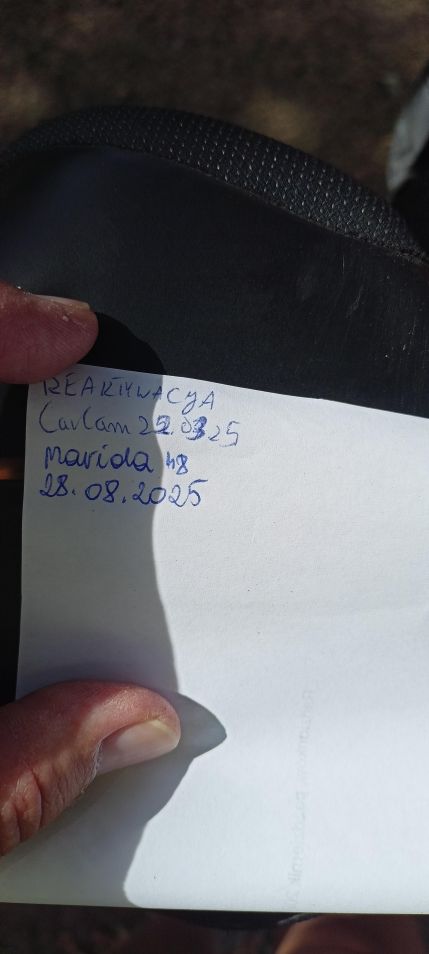 REAKTYWACJA
CarCam 22.03.25
Marida 48
28.08.2025